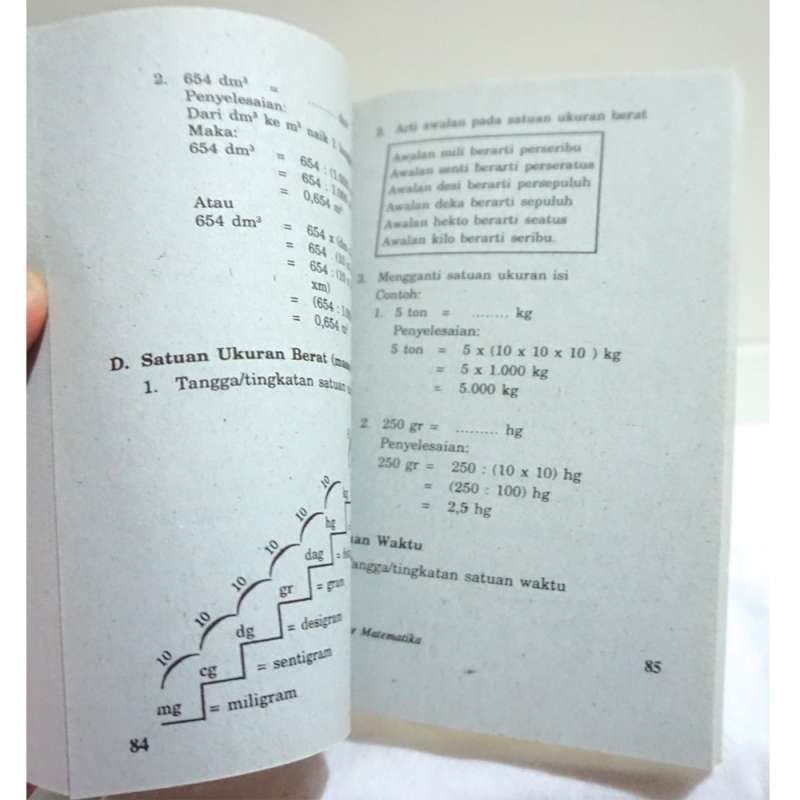 2. 654 dm³ =
Penyelesaian:
Dari dm³ ke m³ naik 1
Maka:
654 dm³ = 654 :
= 654 :
= 0,654 m³
Atau
654 dm³ = 654 x
= 654 :
= 654 :
xm)
= (654 :
= 0,654 m³
D. Satuan Ukuran Berat
1. Tangga/tingkatan satuan
10
10
10
10
10
10
hg
dag
gr = gram
dg = desigram
cg = sentigram
mg = miligram
84
2. Arti awalan pada satuan ukuran berat
Awalan mili berarti perseribu
Awalan senti berarti perseratus
Awalan desi berarti persepuluh
Awalan deka berarti sepuluh
Awalan hekto berarti seatus
Awalan kilo berarti seribu.
3. Mengganti satuan ukuran isi
Contoh:
1. 5 ton = ........ kg
Penyelesaian:
5 ton = 5 x (10 x 10 x 10 ) kg
= 5 x 1.000 kg
= 5.000 kg
2. 250 gr = ......... hg
Penyelesaian:
250 gr = 250 : (10 x 10) hg
= (250 : 100) hg
= 2,5 hg
Waktu
angga/tingkatan satuan waktu
r Matematika
85